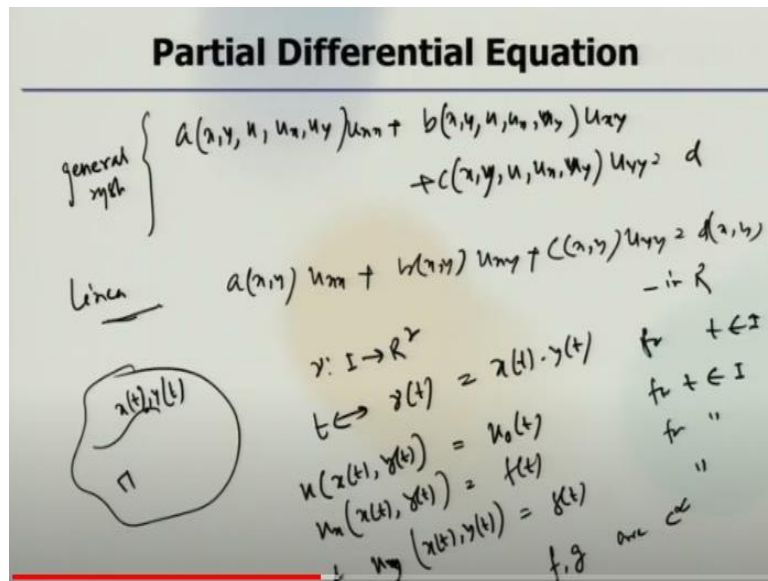 Partial Differential Equation
general { a(x,y, u, ux, uy)uxx + b(x,y,u,ux,uy) uxy
+ c(x,y,u,ux,uy) uyy = d
Linea a(x,y) uxx + b(x,y) uxy + C(x,y) uyy = d(x,y)
- in R
γ: I → R²
t ↔ γ(t) = x(t). y(t) for t ∈ I
x(t), y(t)
u(x(t), y(t)) = u₀(t) for t ∈ I
ux(x(t), y(t)) = f(t) for "
uy (x(t), y(t)) = g(t) "
f, g are